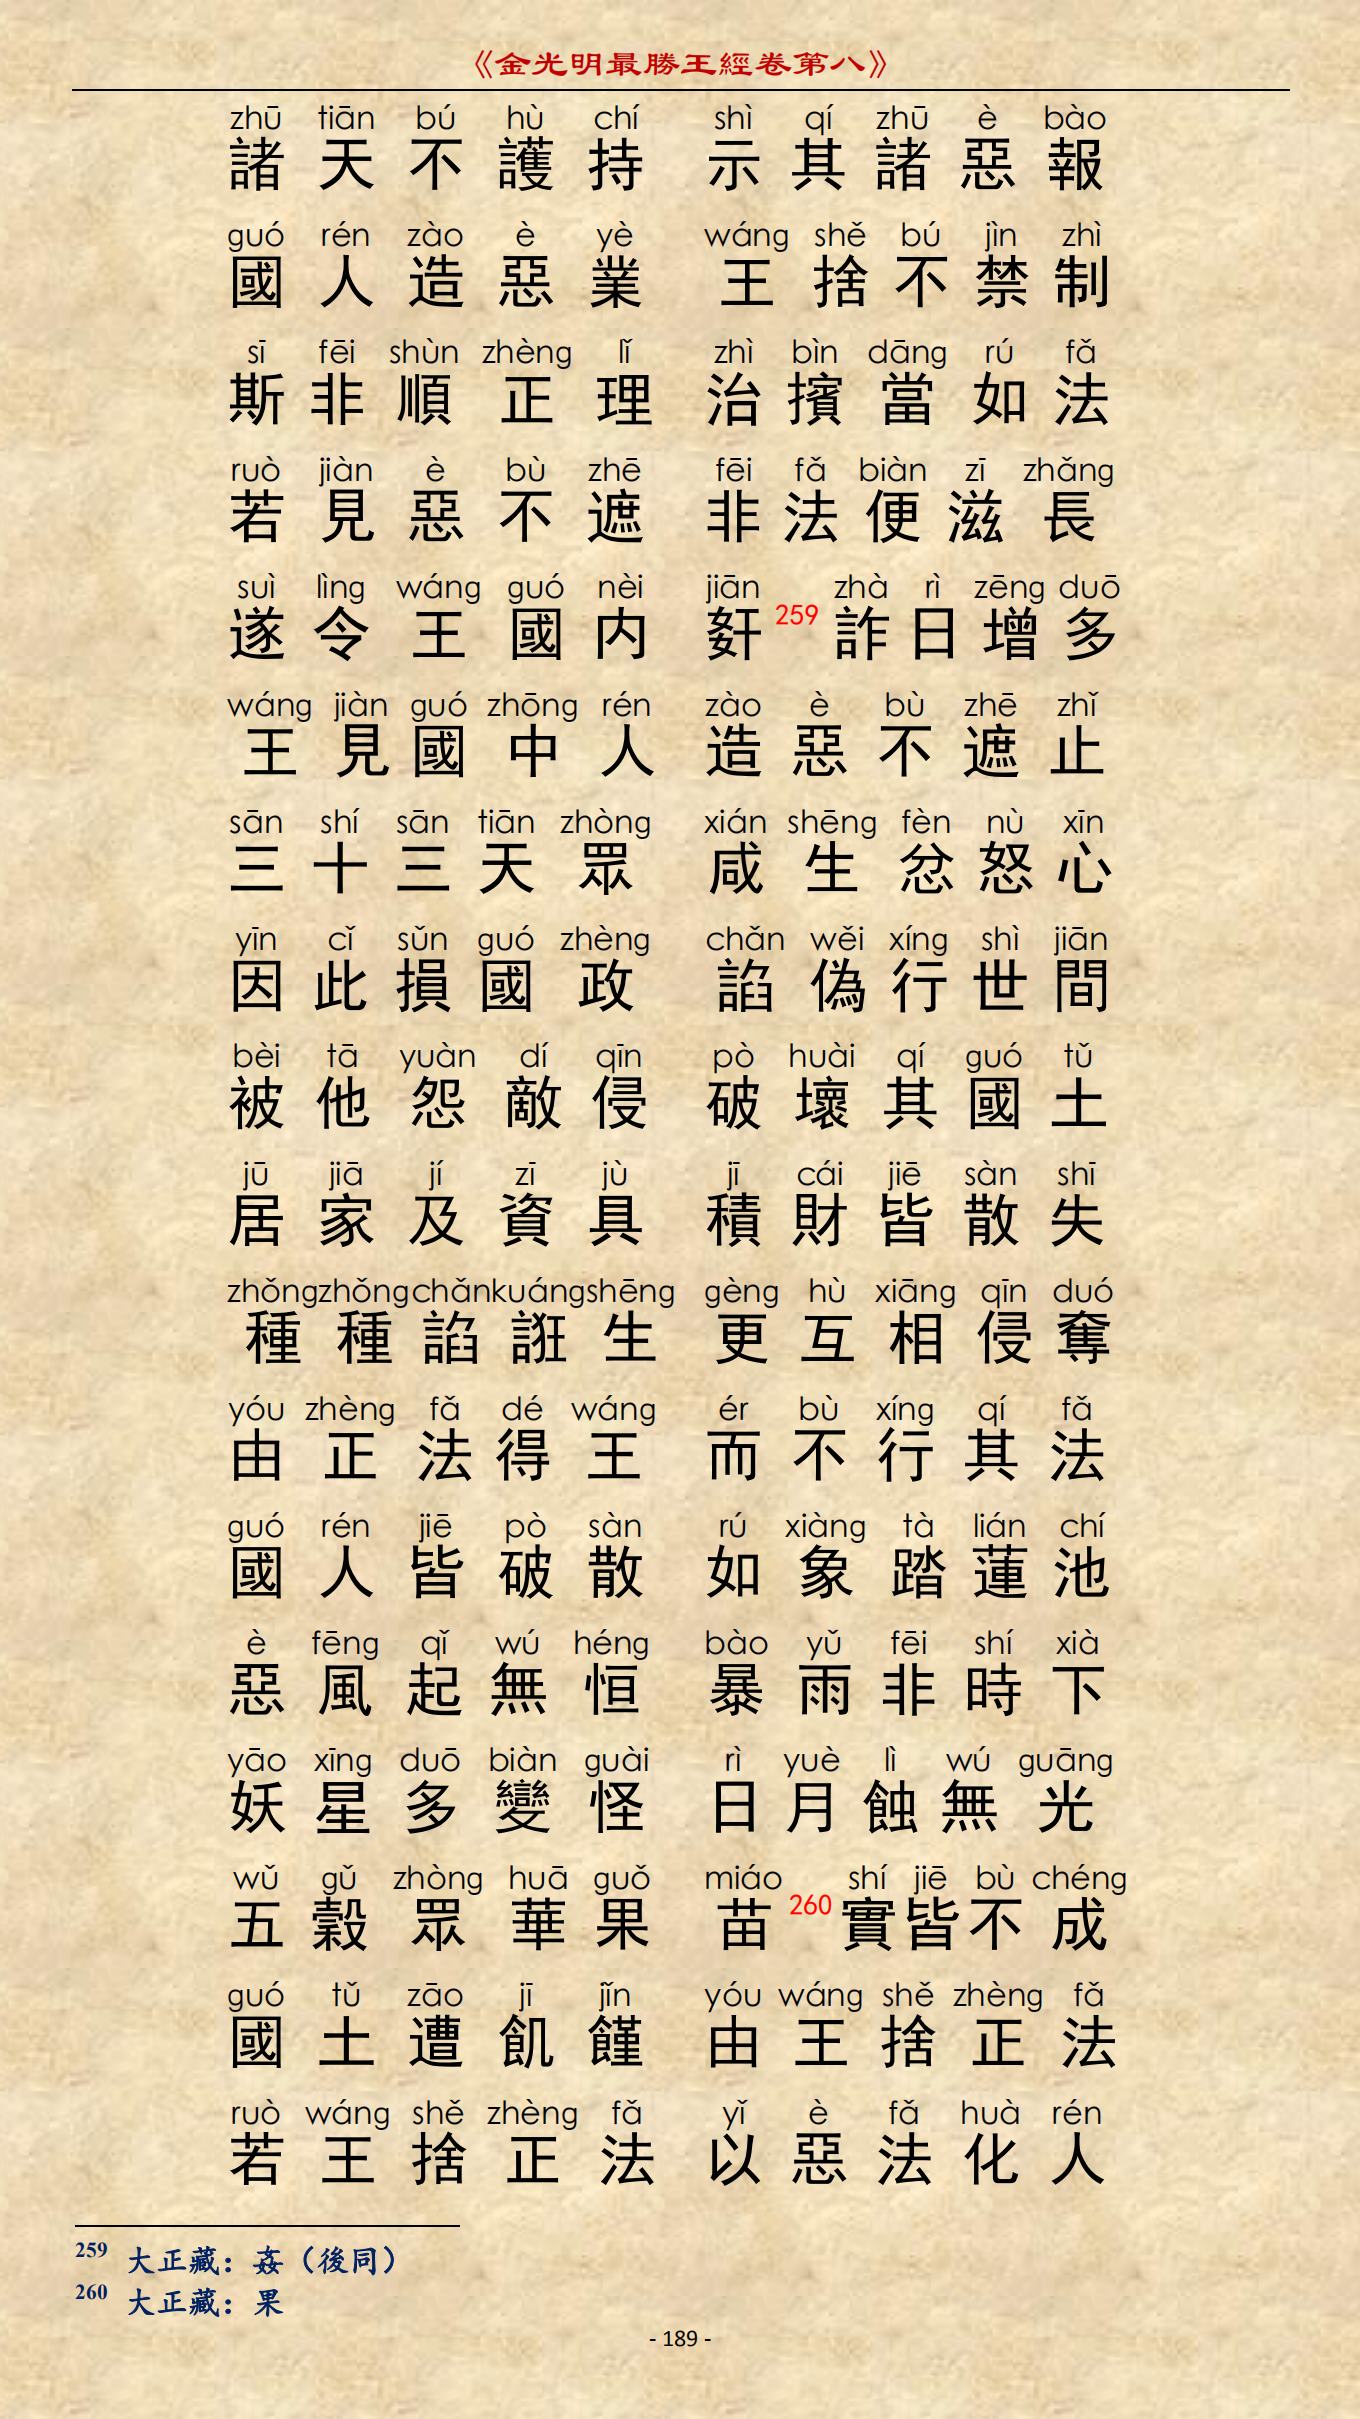 《金光明最勝王經卷第八》
zhū tiān bú hù chí shì qí zhū è bào
諸天不護持 示其諸惡報
guó rén zào è yè wáng shě bú jìn zhì
國人造惡業 王捨不禁制
sī fēi shùn zhèng lǐ zhì bìn dāng rú fǎ
斯非順正理 治擯當如法
ruò jiàn è bù zhē fēi fǎ biàn zī zhǎng
若見惡不遮 非法便滋長
suì lìng wáng guó nèi jiān zhà rì zēng duō
遂令王國内 姧259詐日增多
wáng jiàn guó zhōng rén zào è bù zhē zhǐ
王見國中人 造惡不遮止
sān shí sān tiān zhòng xián shēng fèn nù xīn
三十三天眾 咸生忿怒心
yīn cǐ sǔn guó zhèng chǎn wěi xíng shì jiān
因此損國政 諂偽行世間
bèi tā yuàn dí qīn pò huài qí guó tǔ
被他怨敵侵 破壞其國土
jū jiā jí zī jù jī cái jiē sàn shī
居家及資具 積財皆散失
zhǒng zhǒng chǎn kuáng shēng gèng hù xiāng qīn duó
種種諂誑生 更互相侵奪
yóu zhèng fǎ dé wáng ér bù xíng qí fǎ
由正法得王 而不行其法
guó rén jiē pò sàn rú xiàng tà lián chí
國人皆破散 如象踏蓮池
è fēng qǐ wú héng bào yǔ fēi shí xià
惡風起無恒 暴雨非時下
yāo xīng duō biàn guài rì yuè lì wú guāng
妖星多變怪 日月蝕無光
wǔ gǔ zhòng huā guǒ miáo shí jiē bù chéng
五穀眾華果 苗260實皆不成
guó tǔ zāo jī jǐn yóu wáng shě zhèng fǎ
國土遭飢饉 由王捨正法
ruò wáng shě zhèng fǎ yǐ è fǎ huà rén
若王捨正法 以惡法化人
259 大正藏：姦（後同）
260 大正藏：果
- 189 -